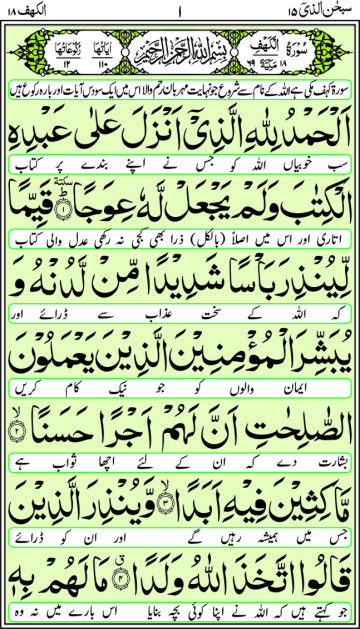 سبحٰن الذیٓ ۱۵ ۱ الکھف ۱۸
سُوْرَةُ الْكَهْفِ ۱۸ مَكِّيَّةٌ ۶۹ بِسْمِ اللهِ الرَّحْمٰنِ الرَّحِيْمِ اٰيَاتُهَا ۱۱۰ رُكُوْعَاتُهَا ۱۲
سورۃ کہف مکی ہے اللہ کے نام سے شروع جو نہایت مہربان رحم والا اس میں ایک سو دس آیات اور بارہ رکوع ہیں
اَلْحَمْدُ لِلّٰهِ الَّذِيْٓ اَنْزَلَ عَلٰى عَبْدِهِ
سب خوبیاں اللہ کو جس نے اپنے بندے پر کتاب
الْكِتٰبَ وَلَمْ يَجْعَلْ لَّهٗ عِوَجًا ؕ سكتة ﴿۱﴾ قَيِّمًا
اتاری اور اس میں اصلاً (بالکل) ذرا بھی کجی نہ رکھی عدل والی کتاب
لِّيُنْذِرَ بَاْسًا شَدِيْدًا مِّنْ لَّدُنْهُ وَ
کہ اللہ کے سخت عذاب سے ڈرائے اور
يُبَشِّرَ الْمُؤْمِنِيْنَ الَّذِيْنَ يَعْمَلُوْنَ
ایمان والوں کو جو نیک کام کریں
الصّٰلِحٰتِ اَنَّ لَهُمْ اَجْرًا حَسَنًا ۙ﴿۲﴾
بشارت دے کہ ان کے لئے اچھا ثواب ہے
مَّاكِثِيْنَ فِيْهِ اَبَدًا ۙ﴿۳﴾ وَّيُنْذِرَ الَّذِيْنَ
جس میں ہمیشہ رہیں گے اور ان کو ڈرائے
قَالُوا اتَّخَذَ اللهُ وَلَدًا ۗ﴿۴﴾ مَا لَهُمْ بِهٖ
جو کہتے ہیں کہ اللہ نے اپنا کوئی بچہ بنایا اس بارے میں نہ وہ